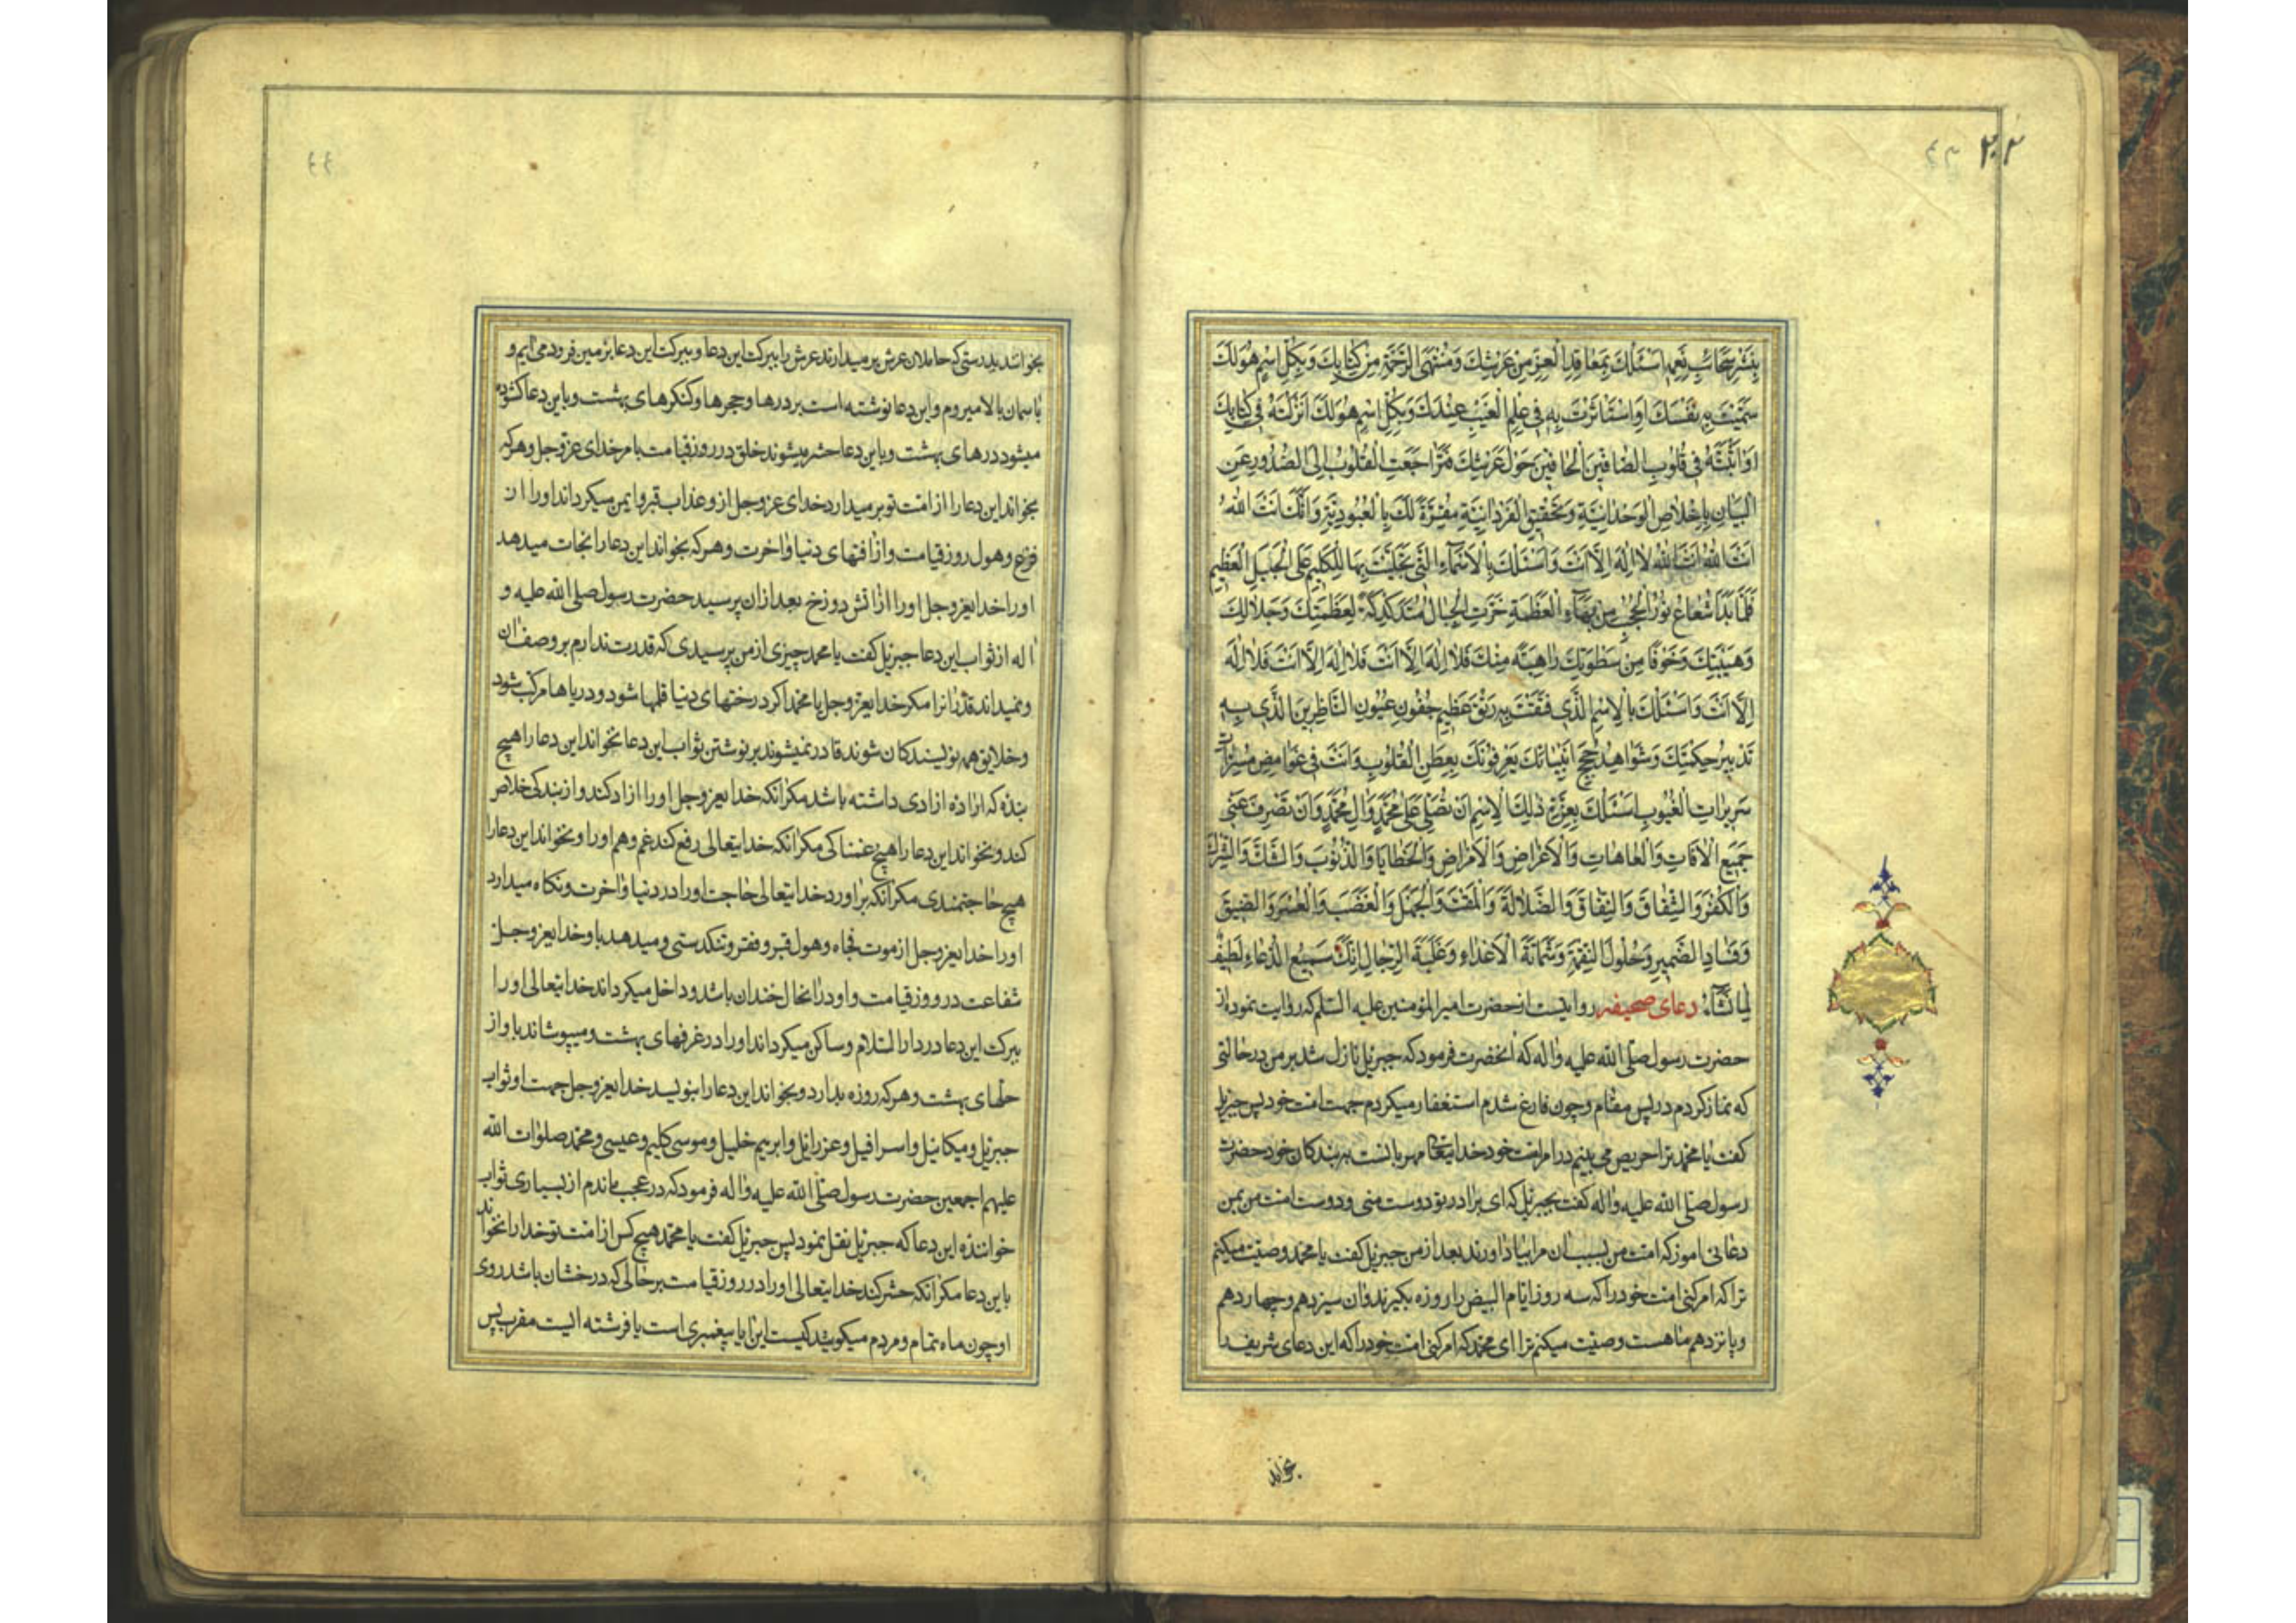 ۲۰۲
بِنَشْرِ سَحَائِبِ نِعَمِهِ اَسْئَلُكَ بِمَعَاقِدِ الْعِزِّ مِنْ عَرْشِكَ وَمُنْتَهَى الرَّحْمَةِ مِنْ كِتَابِكَ وَبِكُلِّ اسْمٍ هُوَ لَكَ
سَمَّيْتَ بِهِ نَفْسَكَ اَوِ اسْتَاثَرْتَ بِهِ فِي عِلْمِ الْغَيْبِ عِنْدَكَ وَبِكُلِّ اسْمٍ هُوَ لَكَ اَنْزَلْتَهُ فِي كِتَابِكَ
اَوْ اَثْبَتَّهُ فِي قُلُوبِ الصَّافِّينَ الْحَافِّينَ حَوْلَ عَرْشِكَ فَتَرَاجَعَتِ الْقُلُوبُ اِلَى الصُّدُورِ عَنِ
الْبَيَانِ بِاِخْلَاصِ الْوَحْدَانِيَّةِ وَتَحْقِيقِ الْفَرْدَانِيَّةِ مُقِرَّةً لَكَ بِالْعُبُودِيَّةِ وَاَنَّكَ اَنْتَ اللهُ
اَنْتَ اللهُ اَنْتَ اللهُ لَا اِلٰهَ اِلَّا اَنْتَ وَاَسْئَلُكَ بِالْاَسْمَاءِ الَّتِي تَجَلَّيْتَ بِهَا لِلْكَلِيمِ عَلَى الْجَبَلِ الْعَظِيمِ
فَلَمَّا بَدَا شُعَاعُ نُورِ الْحُجُبِ مِنْ بَهَاءِ الْعَظَمَةِ خَرَّتِ الْجِبَالُ مُتَدَكْدِكَةً لِعَظَمَتِكَ وَجَلَالِكَ
وَهَيْبَتِكَ وَخَوْفًا مِنْ سَطْوَتِكَ رَاهِبَةً مِنْكَ فَلَا اِلٰهَ اِلَّا اَنْتَ فَلَا اِلٰهَ اِلَّا اَنْتَ فَلَا اِلٰهَ
اِلَّا اَنْتَ وَاَسْئَلُكَ بِالْاِسْمِ الَّذِي فَتَقْتَ بِهِ رَتْقَ عَظِيمِ جُفُونِ عُيُونِ النَّاظِرِينَ الَّذِي بِهِ
تَدْبِيرُ حِكْمَتِكَ وَشَوَاهِدُ حُجَجِ اَنْبِيَائِكَ يَعْرِفُونَكَ بِفِطَنِ الْقُلُوبِ وَاَنْتَ فِي غَوَامِضِ مُسَرَّاتِ
سَرِيرَاتِ الْغُيُوبِ اَسْئَلُكَ بِعِزَّةِ ذٰلِكَ الْاِسْمِ اَنْ تُصَلِّيَ عَلَى مُحَمَّدٍ وَاٰلِ مُحَمَّدٍ وَاَنْ تَصْرِفَ عَنِّي
جَمِيعَ الْاٰفَاتِ وَالْعَاهَاتِ وَالْاَعْرَاضِ وَالْاَمْرَاضِ وَالْخَطَايَا وَالذُّنُوبَ وَالشَّكَّ وَالشِّرْكَ
وَالْكُفْرَ وَالشِّقَاقَ وَالنِّفَاقَ وَالضَّلَالَةَ وَالْمَقْتَ وَالْجَهْلَ وَالْغَضَبَ وَالْعُسْرَ وَالضِّيقَ
وَفَسَادَ الضَّمِيرِ وَحُلُولَ النِّقْمَةِ وَشَمَاتَةَ الْاَعْدَاءِ وَغَلَبَةَ الرِّجَالِ اِنَّكَ سَمِيعُ الدُّعَاءِ لَطِيفٌ
لِمَا تَشَاءُ دعای صحیفه روایتست از حضرت امیر المؤمنین علیه السلم که روایت نمود از
حضرت رسول صلی الله علیه واله که انحضرت فرمود که جبرئیل نازل شد بر من در حالتی
که نماز کردم در پس مقام وچون فارغ شدم استغفار میکردم جهت امت خود پس جبرئیل
کفت یا محمد ترا حریص می بینم در امر امت خود خدایتعالی مهربانست بر بندکان خود حضرت
رسول صلی الله علیه واله کفت بجبرئیل که ای برادر تو دوست منی ودوست امت من بمن
دعائی اموز که امت من بسبب ان مرا بیاد اورند بعد از من جبرئیل کفت یا محمد وصیت میکنم
ترا که امر کنی امت خود را که سه روز ایام البیض را روزه بکیرند وان سیزدهم وچهاردهم
وپانزدهم ماهست وصیت میکنم ترا ای محمد که امر کنی امت خود را که این دعای شریف را
بخوانند
بخوانند بدرستی که حاملان عرش بر میدارند عرش را ببرکت این دعا وببرکت این دعا بزمین فرود می ایم و
باسمان بالا میروم واین دعا نوشته است بر درها وحجرها وکنکرهای بهشت وباین دعا کشوده
میشود درهای بهشت وباین دعا حشر میشوند خلق در روز قیامت بامر خدای عزوجل وهر که
بخواند این دعا را از امت تو بر میدارد خدای عزوجل از و عذاب قبر وایمن میکرداند او را از
فزع وهول روز قیامت واز افتهای دنیا واخرت وهر که بخواند این دعا را نجات میدهد
او را خدایعزوجل او را از اتش دوزخ بعد ازان پرسید حضرت رسول صلی الله علیه و
اله از ثواب این دعا جبرئیل کفت یا محمد چیزی از من پرسیدی که قدرت ندارم بر وصف ان
ونمیداند قدر انرا مکر خدایعزوجل یا محمد اکر درختهای دنیا قلمها شود ودریاها مرکب شود
وخلایق همه نویسندکان شوند قادر نمیشوند بر نوشتن ثواب این دعا نخواند این دعا را هیچ
بنده که اراده ازادی داشته باشد مکر انکه خدایعزوجل او را ازاد کند واز بندکی خلاص
کند ونخواند این دعا را هیچ غمناکی مکر انکه خدایتعالی رفع کند غم وهم او را ونخواند این دعا را
هیچ حاجتمندی مکر انکه بر اورد خدایتعالی حاجت او را در دنیا واخرت ونکاه میدارد
او را خدایعزوجل از موت فجاه وهول قبر وفقر وتنکدستی ومیدهد باو خدایعزوجل
شفاعت در روز قیامت واو در انحال خندان باشد وداخل میکرداند خدایتعالی او را
ببرکت این دعا در دار السلام وساکن میکرداند او را در غرفهای بهشت ومیپوشاند باو از
حلهای بهشت وهر که روزه بدارد وبخواند این دعا را بنویسد خدایعزوجل جهت او ثواب
جبرئیل ومیکائیل واسرافیل وعزرائیل وابرهیم خلیل وموسی کلیم وعیسی ومحمد صلوات الله
علیهم اجمعین حضرت رسول صلی الله علیه واله فرمود که در عجب ماندم از بسیاری ثواب
خواننده این دعا که جبرئیل نقل نمود پس جبرئیل کفت یا محمد هیچ کس از امت تو خدا را نخواند
باین دعا مکر انکه حشر کند خدایتعالی او را در روز قیامت بر حالی که درخشان باشد روی
او چون ماه تمام ومردم میکویند کیست این ایا پیغمبری است یا فرشته ایست مقرب پس